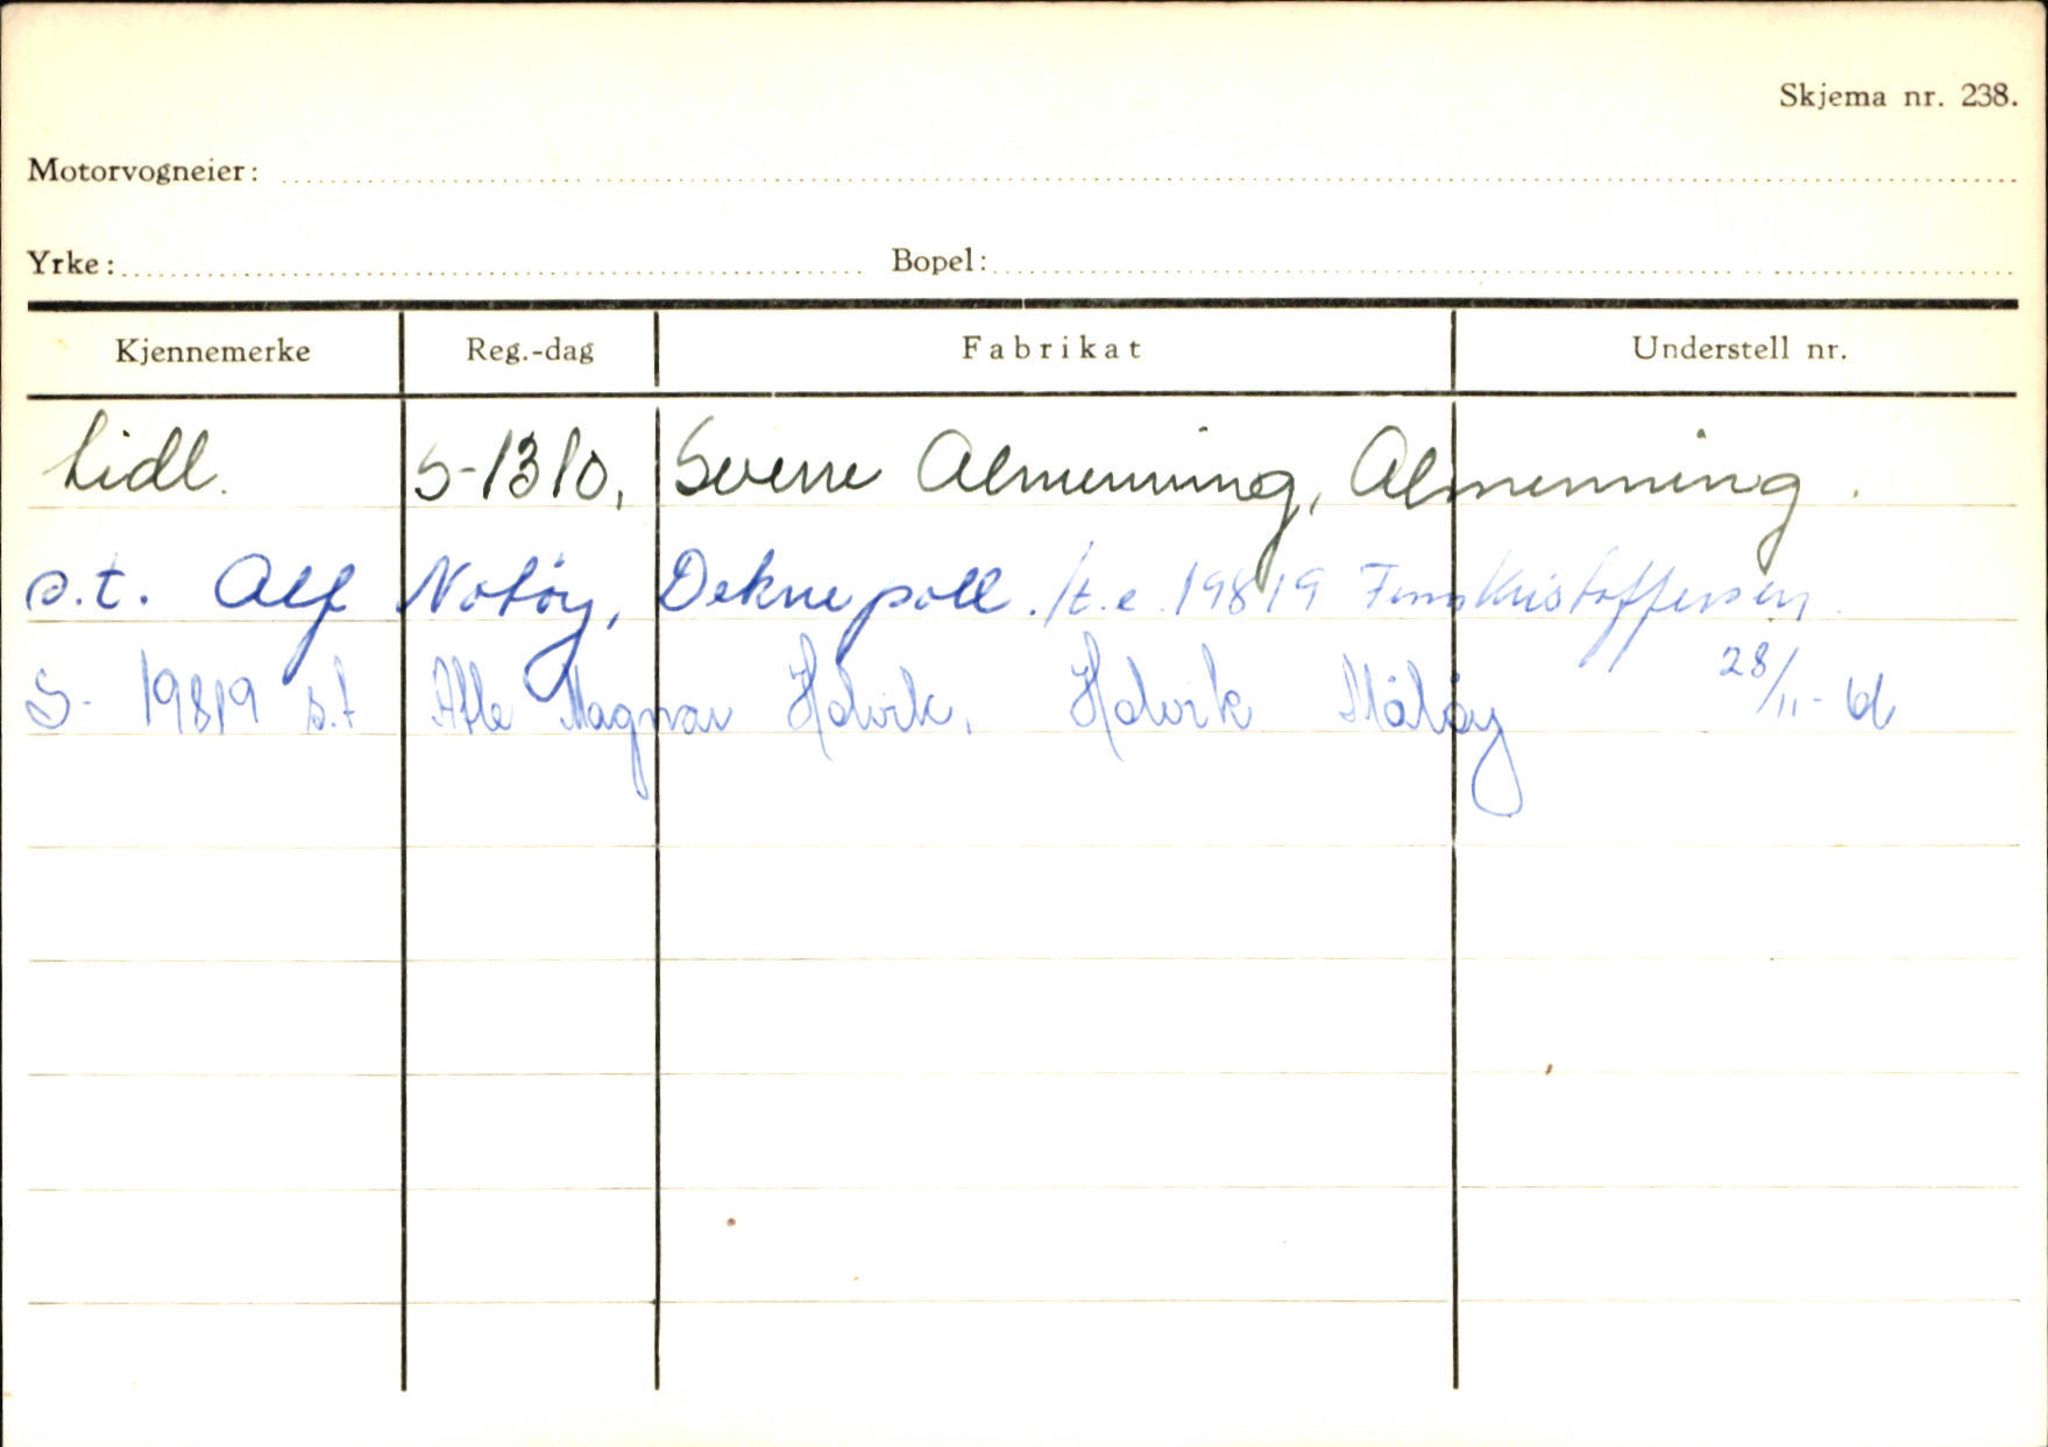 Skjema nr. 238.
Motorvogneier:
Yrke: Bopel:
Kjennemerke Reg.-dag Fabrikat Understell nr.
tidl. S-1310, Sverre Almenning, Almenning.
s.t. Alf Notøy, Deknepoll. /t.e. 19819 Finn Kristoffersen.
S- 19819 s.t Atle Magnar Holvik, Holvik Måløy 28/11-61